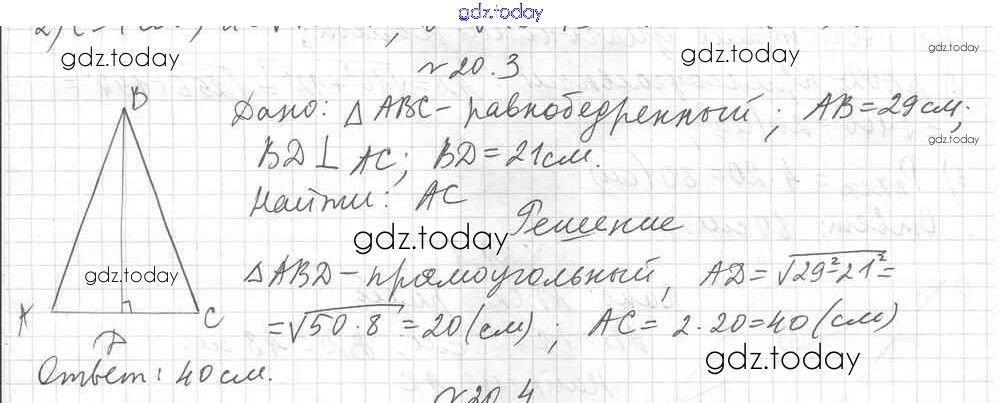 gdz.today
gdz.today gdz.today gdz.today
№ 20.3
B
Дано: △ABC - равнобедренный; AB = 29 см;
BD ⊥ AC; BD = 21 см.
gdz.today
Найти: AC
Решение
gdz.today
gdz.today
△ABD - прямоугольный, AD = √29²-21² =
= √50·8 = 20 (см); AC = 2·20 = 40 (см)
A C
D
gdz.today
Ответ: 40 см.
№ 20.4